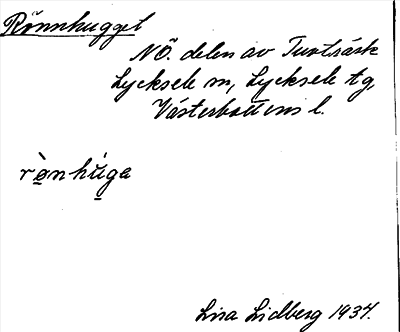 Rönnhugget
NÖ. delen av Tuvträsk
Lycksele sn, Lycksele tg,
Västerbottens l.
rǫ̀nhúga
Lisa Lidberg 1934.